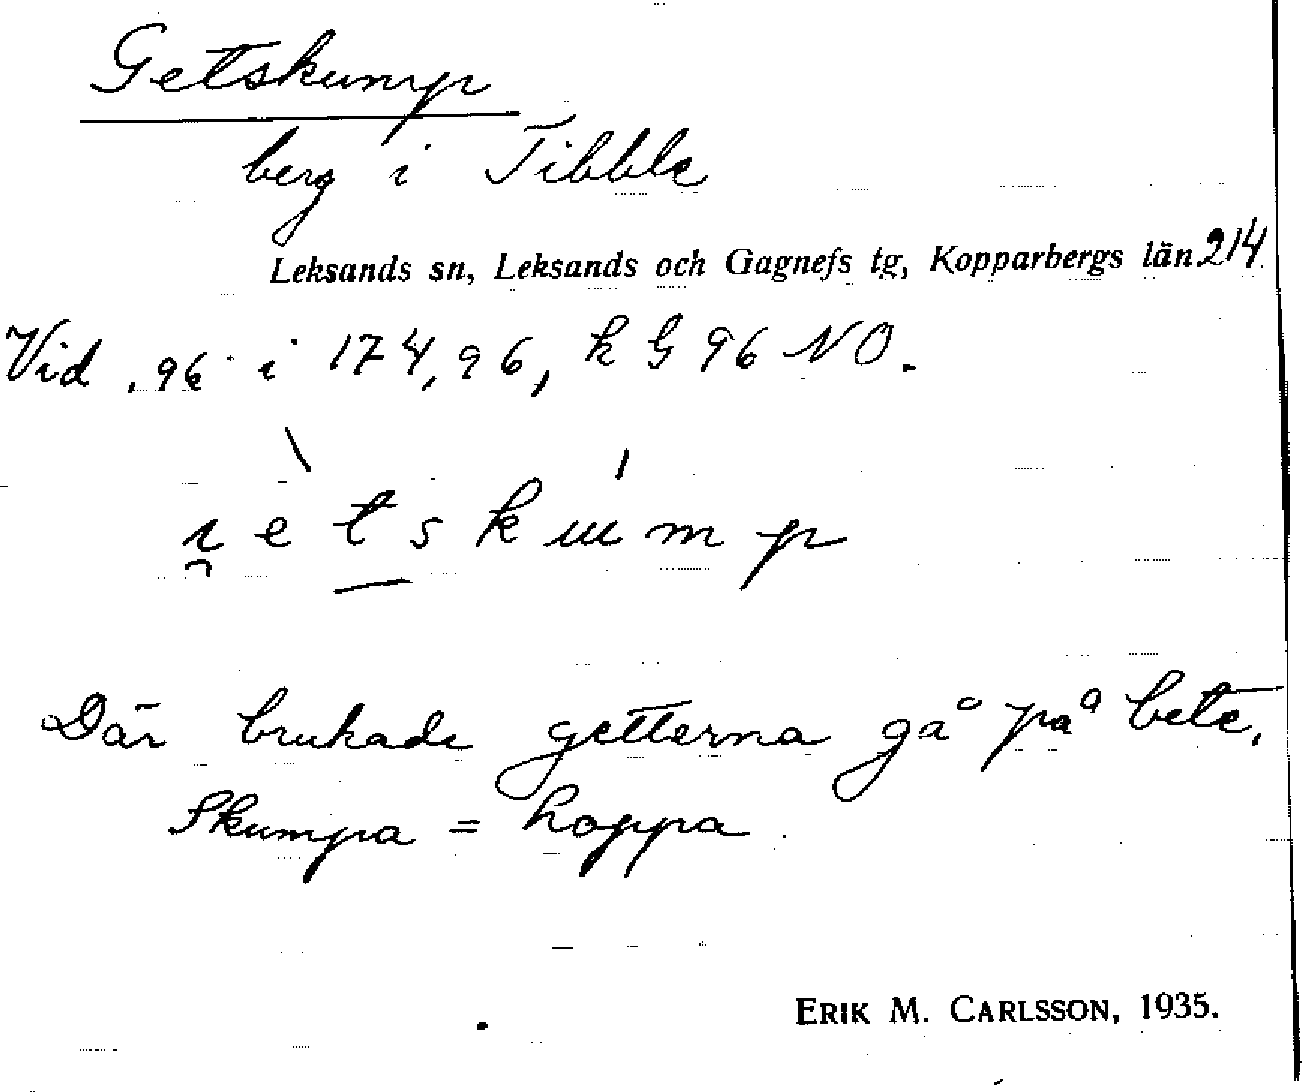 Getskump
berg i Tibble
Leksands sn, Leksands och Gagnefs tg, Kopparbergs län 214
Vid .96 i 174,96, k G 96 NO.
i̯ètskɯ́mp
Där brukade getterna gå på bete.
Skumpa = hoppa
ERIK M. CARLSSON, 1935.